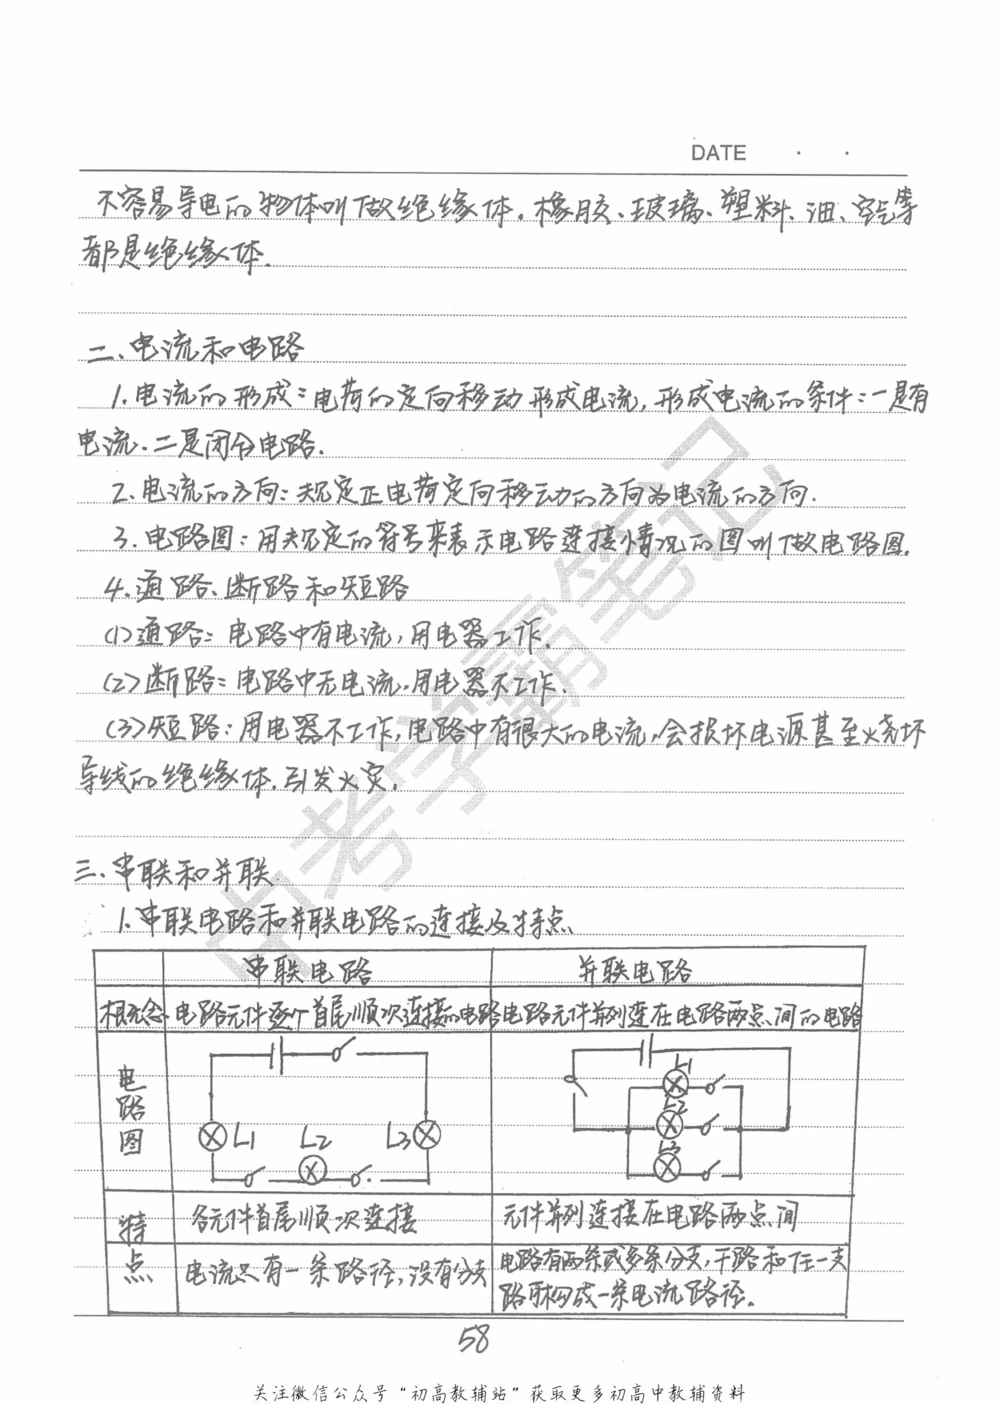 DATE · ·
不容易导电的物体叫做绝缘体.橡胶、玻璃、塑料、油、空气等
都是绝缘体.
二、电流和电路
1.电流的形成:电荷的定向移动形成电流,形成电流的条件:一是有
电流.二是闭合电路.
2.电流的方向:规定正电荷定向移动的方向为电流的方向.
3.电路图:用规定的符号来表示电路连接情况的图叫做电路图.
4.通路、断路和短路
(1)通路:电路中有电流,用电器工作.
(2)断路:电路中无电流.用电器不工作.
(3)短路:用电器不工作,电路中有很大的电流,会损坏电源甚至烧坏
导线的绝缘体.引发火灾.
三、串联和并联
1.串联电路和并联电路的连接及特点
串联电路 并联电路
概念 电路元件逐个首尾顺次连接的电路 电路元件并列连在电路两点间的电路
电路图
L1 L2 L3
L1
L2
L3
特点
各元件首尾顺次连接 元件并列连接在电路两点间
电流只有一条路径,没有分支 电路有两条或多条分支,干路和任一支
路可构成一条电流路径.
58
关注微信公众号“初高教辅站”获取更多初高中教辅资料
中考学霸笔记